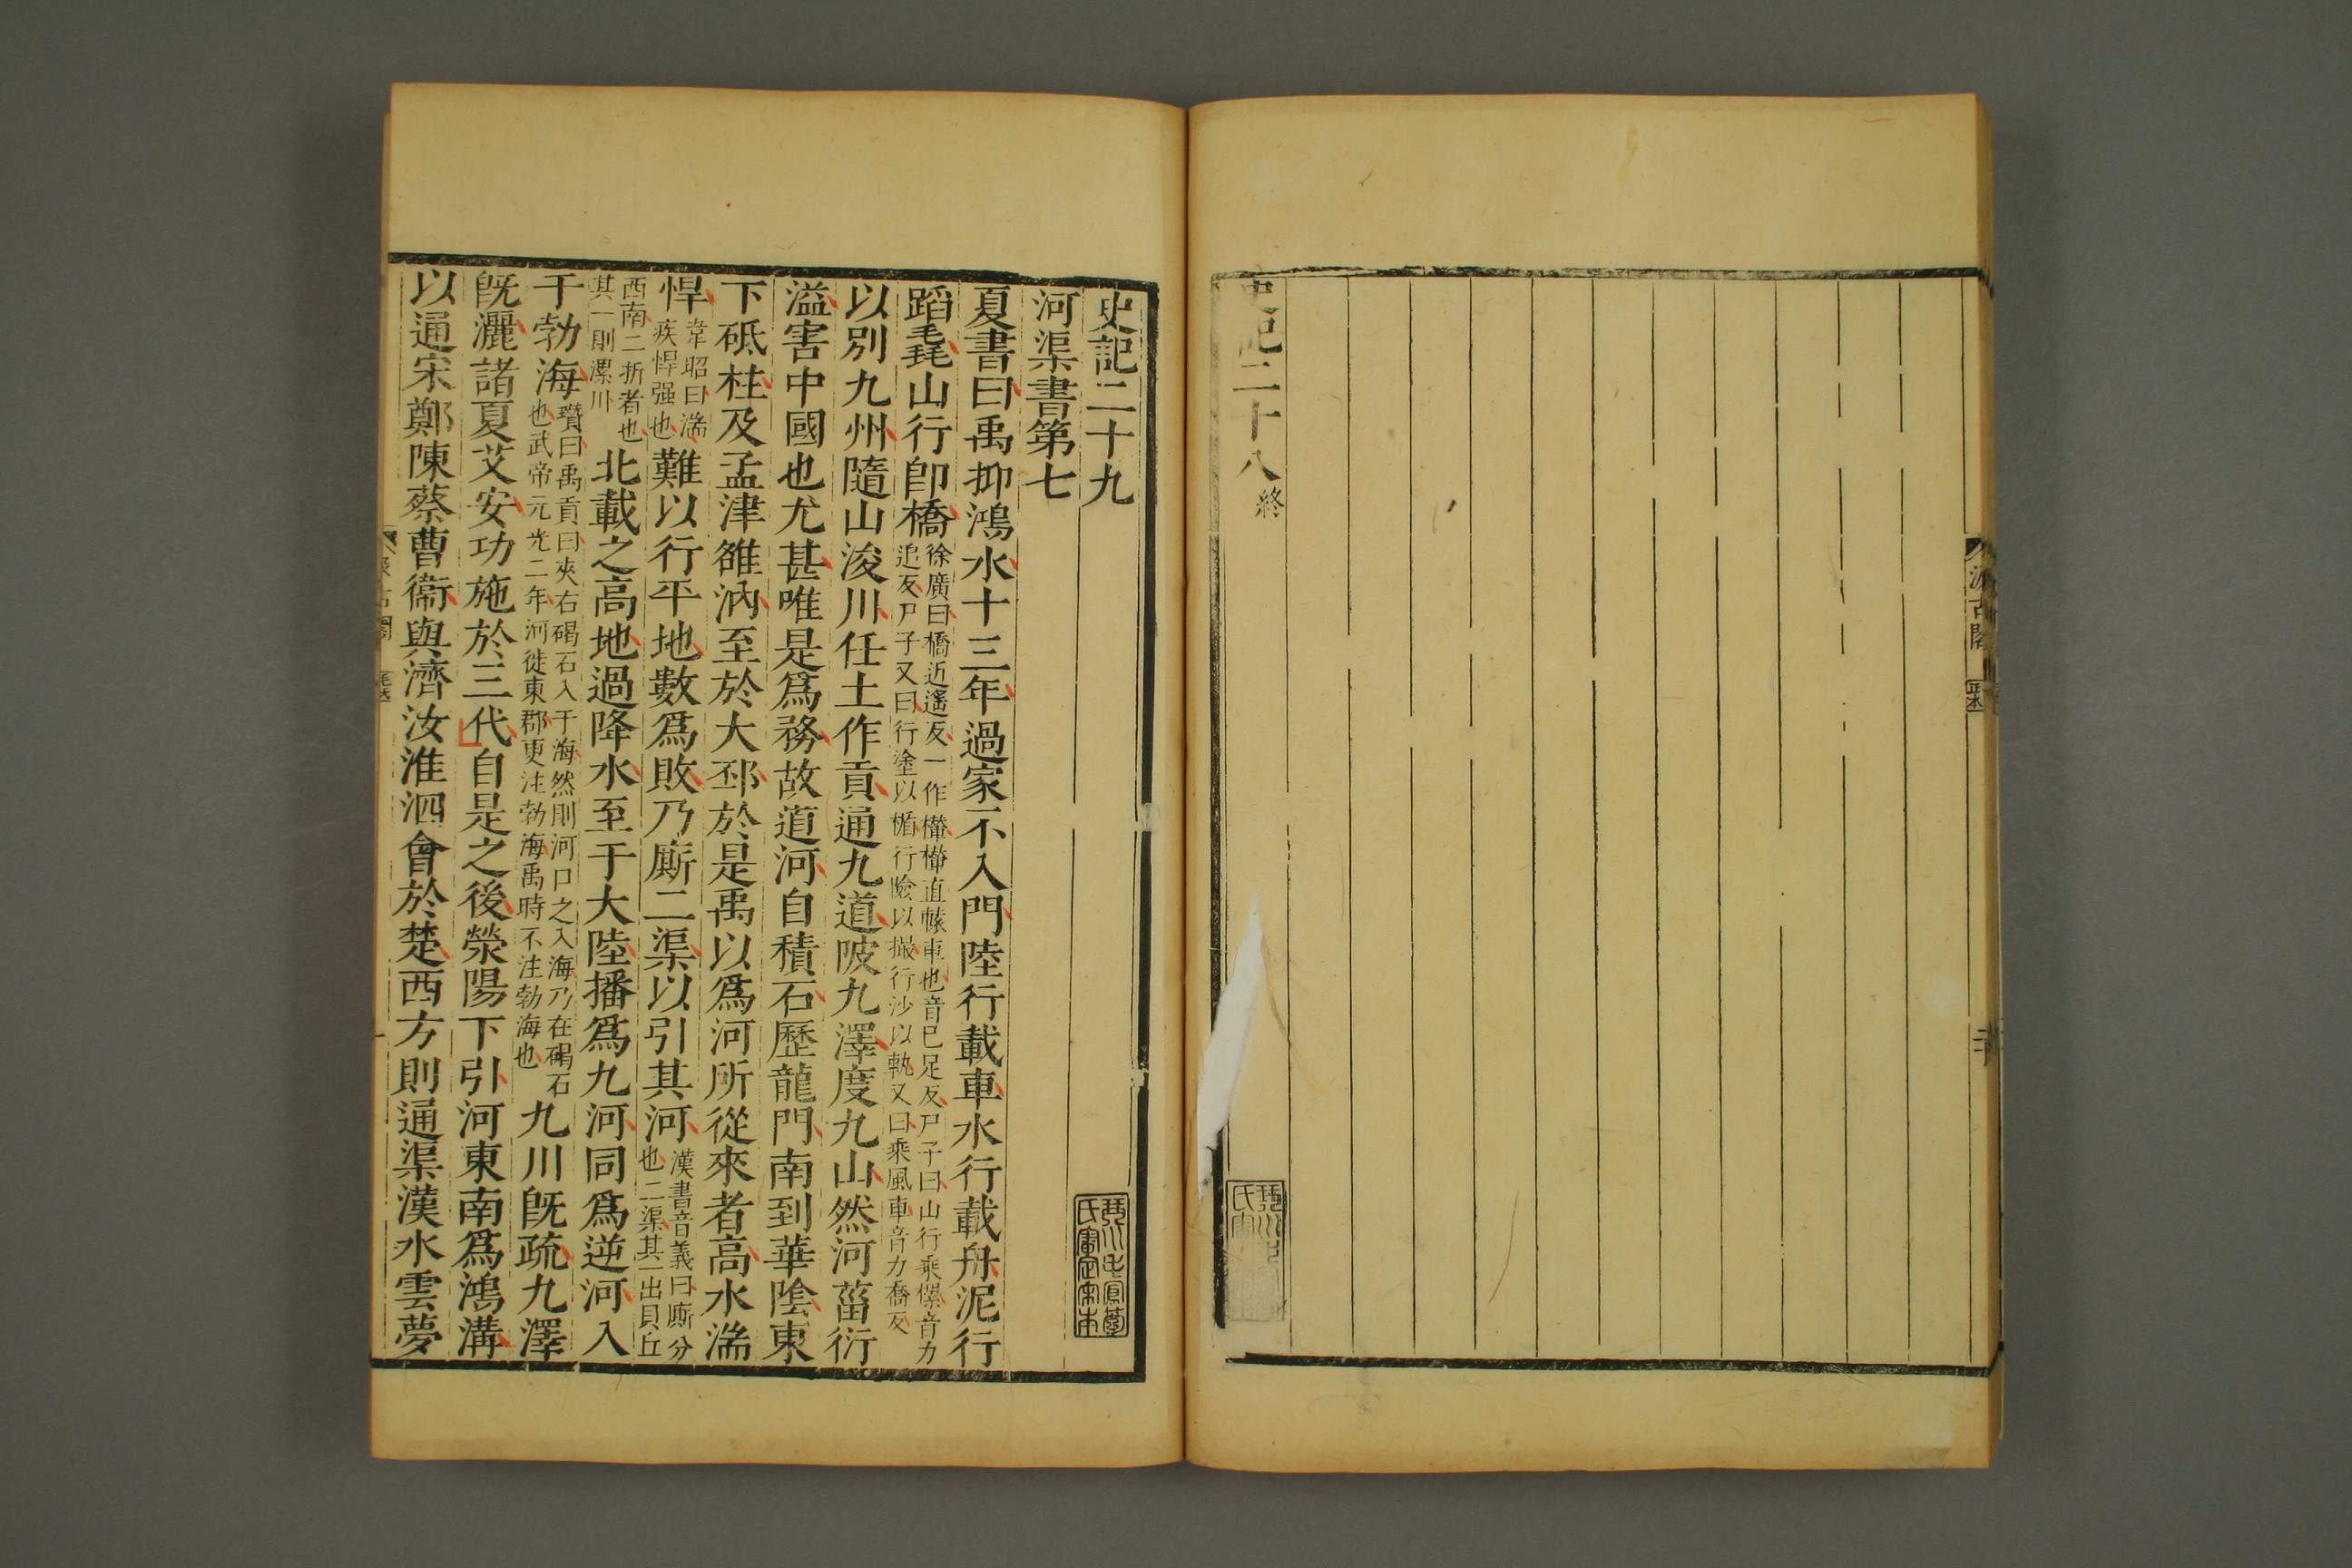 史記二十八終
汲古閣
史記二十九
河渠書第七
夏書曰禹抑鴻水十三年過家不入門陸行載車水行載舟泥行
蹈毳山行即橋徐廣曰橋近遙反一作檋檋直轅車也音己足反尸子曰山行乘欙音力
追反尸子又曰行塗以楯行險以撮行沙以軌又曰乘風車音力喬反
以別九州隨山浚川任土作貢通九道陂九澤度九山然河菑衍
溢害中國也尤甚唯是爲務故道河自積石歷龍門南到華陰東
下砥柱及孟津雒汭至於大邳於是禹以爲河所從來者高水湍
悍韋昭曰湍
疾悍强也難以行平地數爲敗乃廝二渠以引其河漢書音義曰廝分
也二渠其一出貝丘
西南二折者也
其一則漯川北載之高地過降水至于大陸播爲九河同爲逆河入
于勃海瓚曰禹貢曰夾右碣石入于海然則河口之入海乃在碣石
也武帝元光二年河徙東郡更注勃海禹時不注勃海也九川既疏九澤
既灑諸夏艾安功施於三代自是之後滎陽下引河東南爲鴻溝
以通宋鄭陳蔡曹衞與濟汝淮泗會於楚西方則通渠漢水雲夢